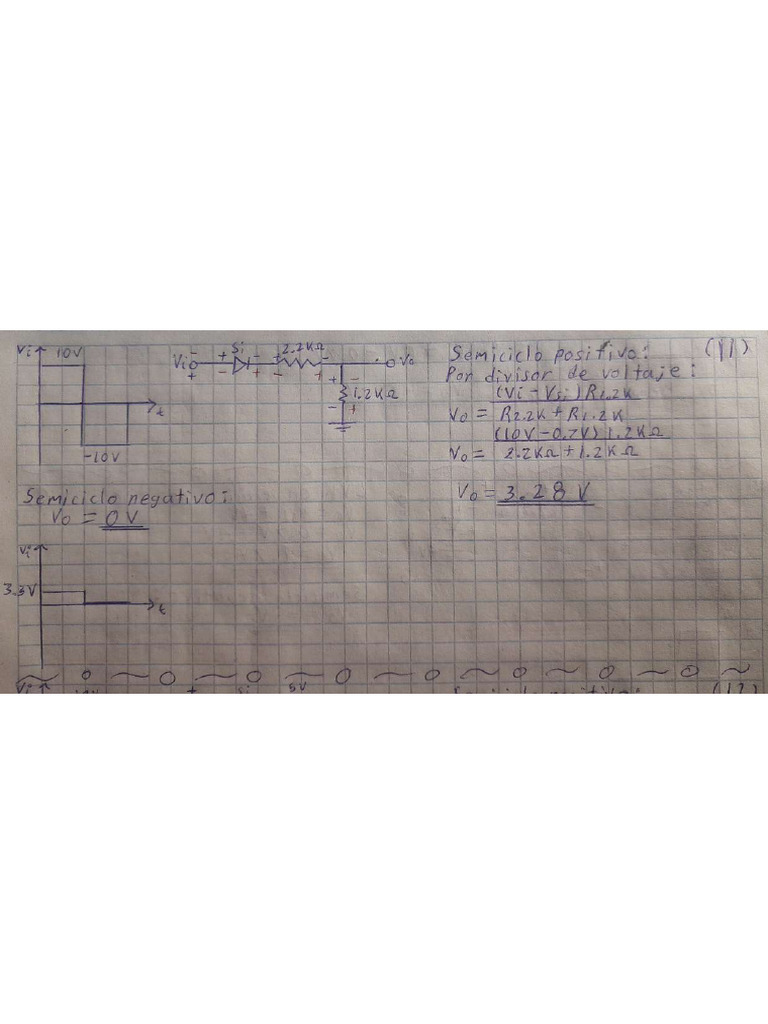 Vi 10V
-10V
t
Vi Si 2.2KΩ Vo
1.2KΩ
Semiciclo positivo: (11)
Por divisor de voltaje:
Vo = (Vi - Vsi) R1.2K
R2.2K + R1.2K
Vo = (10V - 0.7V) 1.2KΩ
2.2KΩ + 1.2KΩ
Vo = 3.28 V
Semiciclo negativo:
Vo = 0V
Vi
3.3V
t
Vi Si 5V (12)